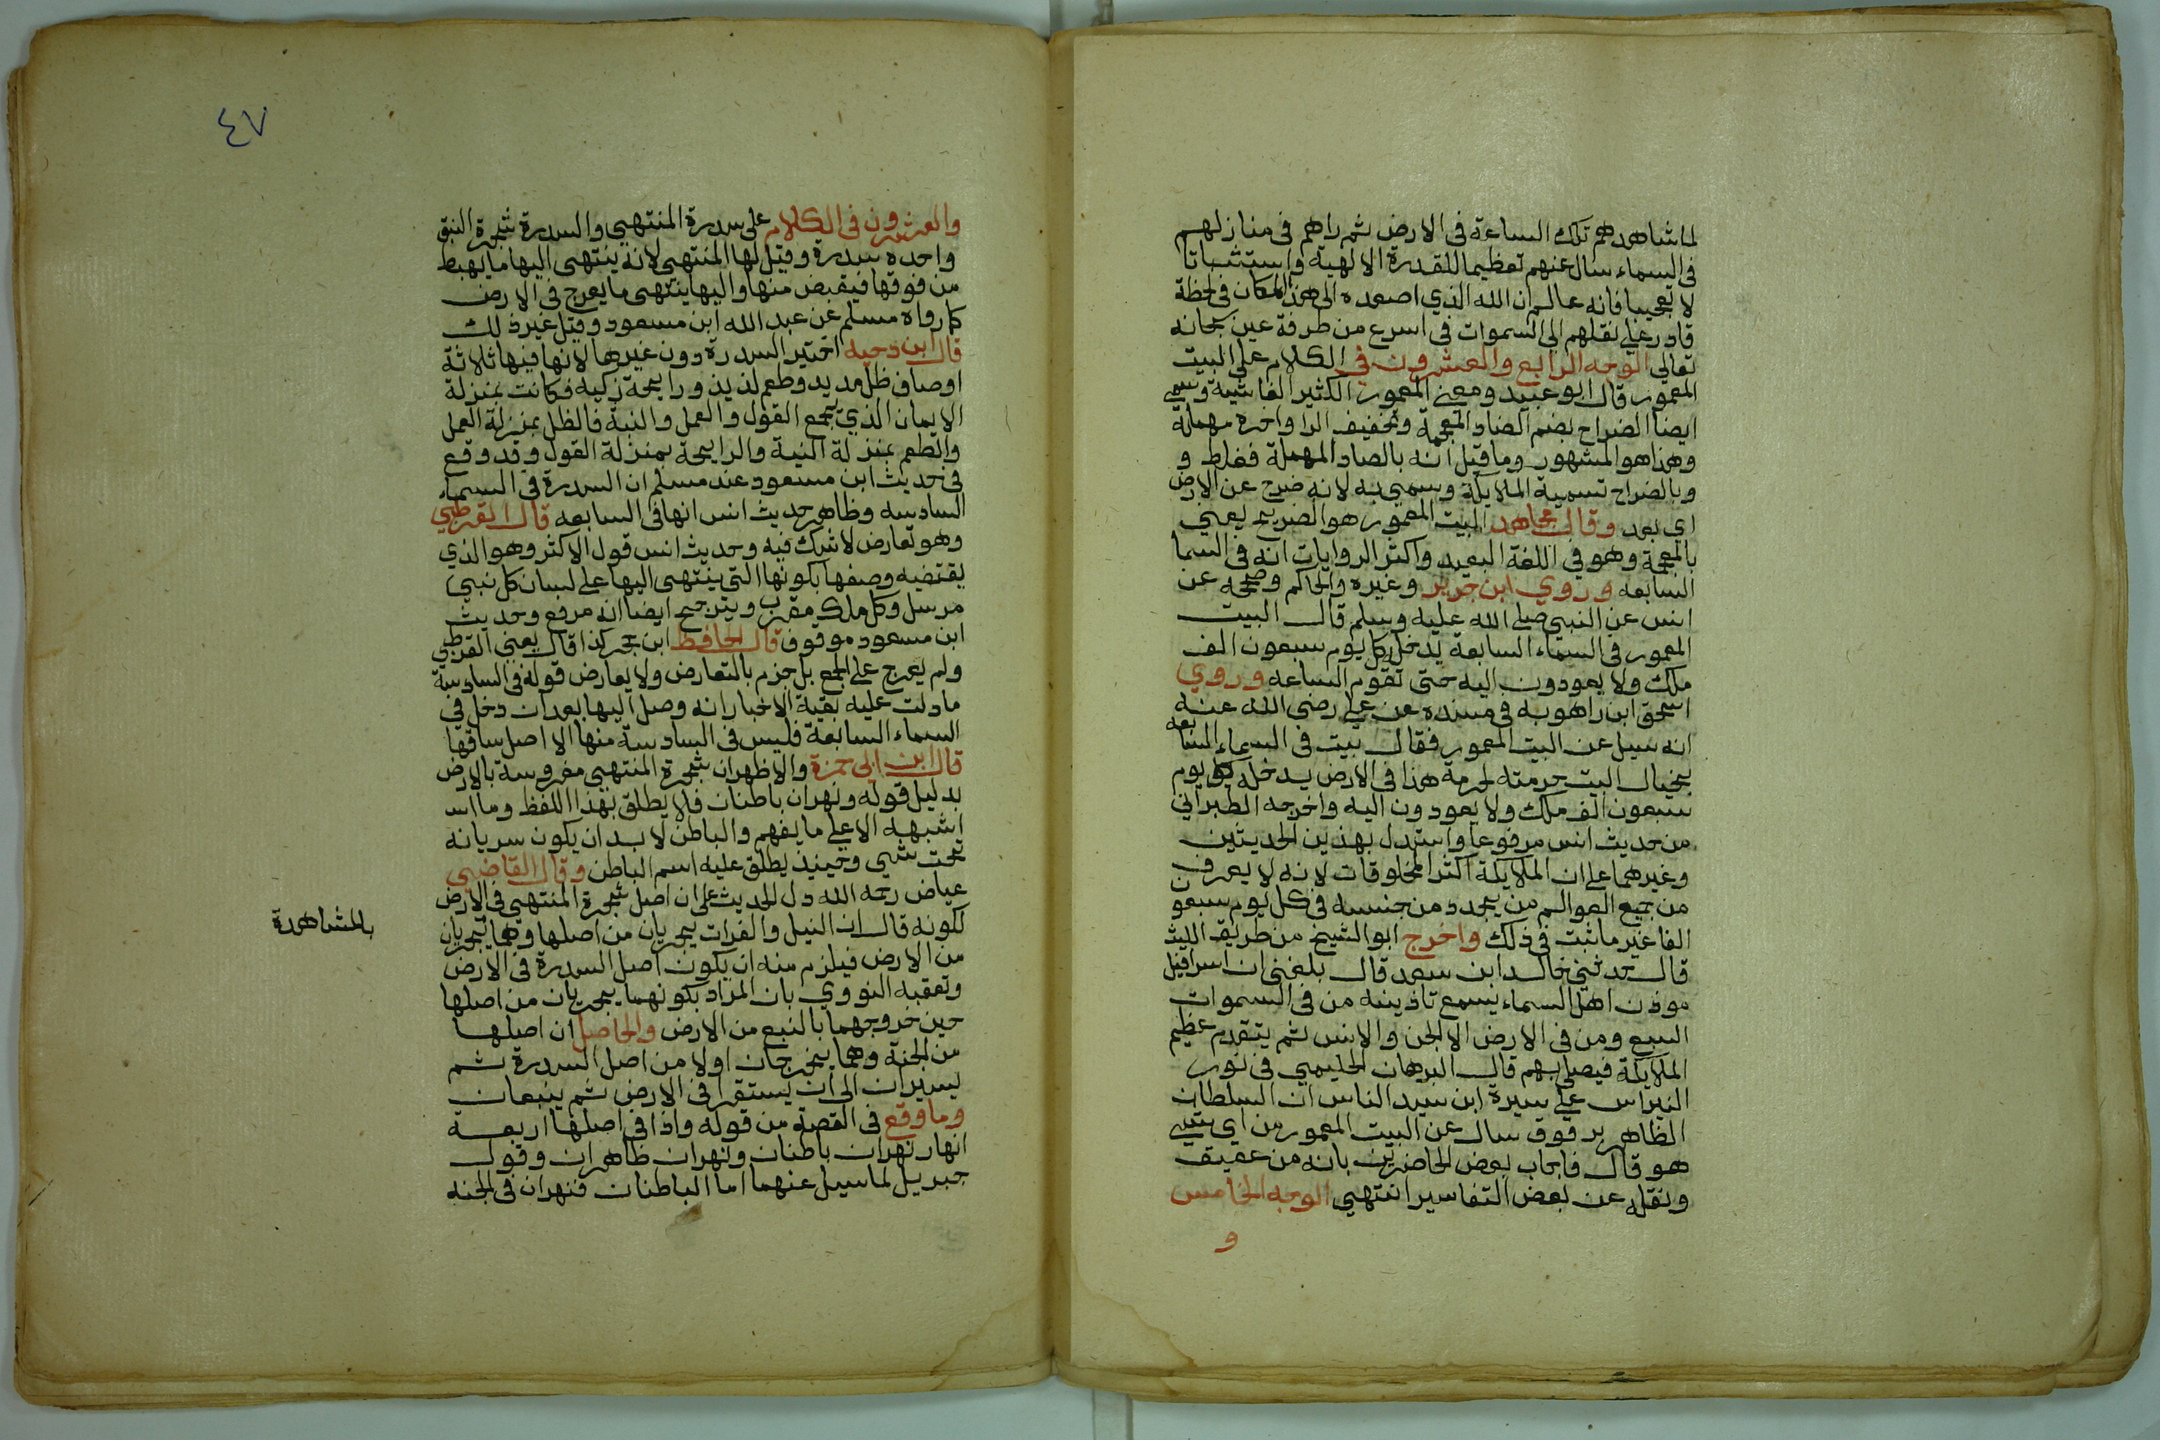 لما شاهدهم تلك الساعة في الارض ثم راهم في منازلهم
في السماء سال عنهم تعظيما للقدرة الالهية واستثباتا
لا تعجيبا فانه عالم ان الله الذي اصعده الى هذا المكان في لحظة
قادر على نقلهم الى السموات في اسرع من طرفة عين سبحانه
تعالى الوجه الرابع والعشرون في الكلام على البيت
المعمور قال ابو عبيد ومعنى المعمور الكثير الغاشية ويسمى
ايضا الضراح بضم الضاد المعجمة وتخفيف الرا واخره مهملة
وهذا هو المشهور وما قيل انه بالصاد المهملة فغلط و
وبالضراح تسمية الملايكة وسمى به لانه ضرح عن الارض
اي بعد وقال مجاهد البيت المعمور هو الضريح يعني
بالمعجمة وهو في اللغة البعيد واكثر الروايات انه في السما
السابعه وروي ابن جرير وغيره والحاكم وصححه عن
انس عن النبي صلى الله عليه وسلم قال البيت
المعمور في السماء السابعة يدخله كل يوم سبعون الف
ملك ولا يعودون اليه حتى تقوم الساعه وروي
اسحق ابن راهويه في مسنده عن على رضي الله عنه
انه سيل عن البيت المعمور فقال بيت في السماء السابعه
بحيال البيت حرمته لحرمة هذا في الارض يدخله كل يوم
سبعون الف ملك ولا يعودون اليه واخرجه الطبراني
من حديث انس مرفوعا واستدل بهذين الحديثين
وغيرهما على ان الملايكة اكثر المخلوقات لانه لا يعرف
من جميع العوالم من يتجدد من جنسه في كل يوم سبعون
الفا غير ما ثبت في ذلك واخرج ابو الشيخ من طريق الليث
قال حدثني خالد ابن سعد قال بلغني ان اسرافيل
موذن اهل السماء يسمع تاذينه من في السموات
السبع ومن في الارض الا الجن والانس ثم يتقدم عظيم
الملايكة فيصلي بهم قال البرهان الحليمي في نور
النبراس على سيرة ابن سيد الناس ان السلطان
الظاهر برقوق سال عن البيت المعمور من اي شي
هو قال فاجاب بعض الحاضرين بانه من عقيق
ونقله عن بعض التفاسير انتهى الوجه الخامس
و
٤٧
والعشرون في الكلام على سدرة المنتهى والسدرة شجرة النبق
واحده سدرة وقيل لها المنتهى لانه ينتهى اليها ما يهبط
من فوقها فيقبض منها واليها ينتهى ما يعرج في الارض
كما رواه مسلم عن عبد الله ابن مسعود وقيل غير ذلك
قال ابن دحيه اختير السدرة دون غيرها لانها فيها ثلاثة
اوصاف ظل مديد وطعم لذيذ ورايحة زكيه فكانت بمنزلة
الايمان الذي يجمع القول والعمل والنية فالظل بمنزلة العمل
والطعم بمنزلة النية والرايحة بمنزلة القول وقد وقع
في حديث ابن مسعود عند مسلم ان السدرة في السماء
السادسه وظاهر حديث انس انها في السابعه قال القرطبي
وهو تعارض لا شك فيه وحديث انس قول الاكثر وهو الذي
يقتضيه وصفها بكونها التي ينتهى اليها على لسان كل نبي
مرسل وكل ملك مقرب ويترجح ايضا انه مرفع وحديث
ابن مسعود موقوف قال الحافظ ابن حجر كذا قال يعني القرطبي
ولم يعرج على الجمع بل جزم بالتعارض ولا يعارض قوله في السادسة
ما دلت عليه بقية الاخبار انه وصل اليها بعد ان دخل في
السماء السابعة فليس في السادسة منها الا اصل ساقها
قال ابن ابي حمزة والاظهر ان شجرة المنتهى مغروسة بالارض
بدليل قوله ونهران باطنان فلا يطلق بهذا اللفظ وما اسد
اشبهه الا على ما يفهم والباطن لا بد ان يكون سريانه
تحت شي وحينيذ يطلق عليه اسم الباطن وقال القاضي
عياض رحمه الله دل الحديث على ان اصل شجرة المنتهى في الارض
لكونه قال ان النيل والفرات يجريان من اصلها وهما يجريان
بالمشاهدة
من الارض فيلزم منه ان يكون اصل السدرة في الارض
وتعقبه النووي بان المراد بكونهما يجريان من اصلها
حين خروجهما بالنبع من الارض والحاصل ان اصلها
من الجنة وهما يخرجان اولا من اصل السدرة ثم
يسيران الى ان يستقرا في الارض ثم ينبعان
وما وقع في القصة من قوله واذا في اصلها اربعة
انهار نهران باطنان ونهران ظاهران وقول
جبريل لما سيل عنهما اما الباطنان فنهران في الجنه